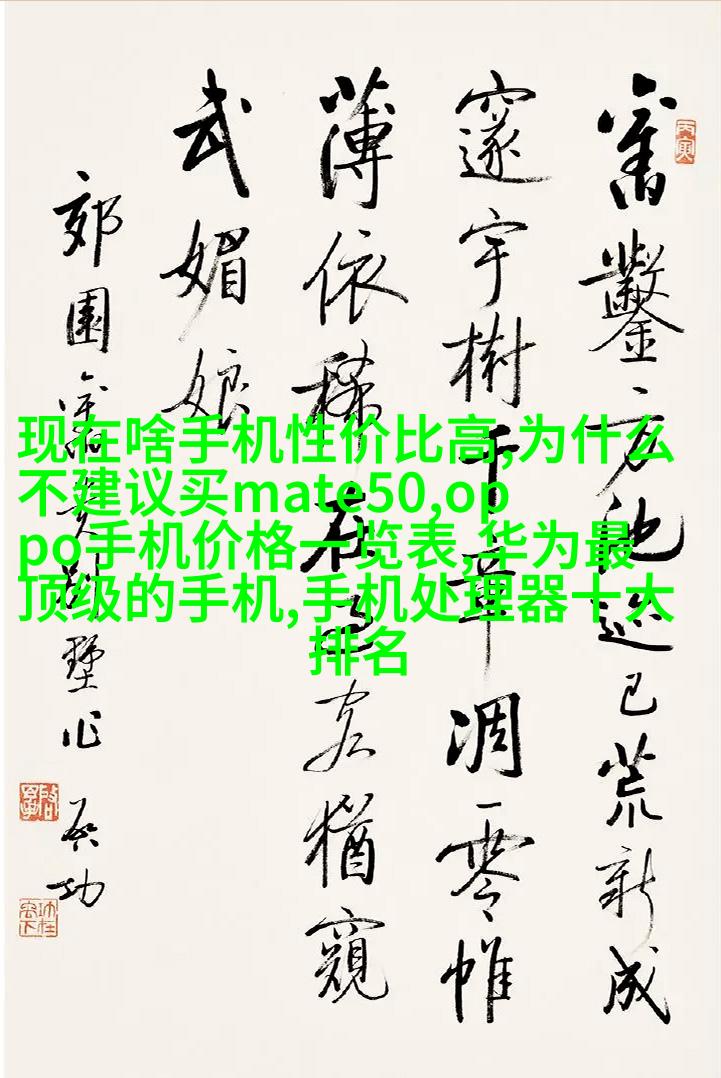 舊鑿方池迹已荒新成
邃宇樹千章凋零帷
薄依稀在客猶窺
武媚娘
郊園別墅作 啟功
丙寅
现在啥手机性价比高,为什么
不建议买mate50,op
po手机价格一览表,华为最
顶级的手机,手机处理器十大
排名